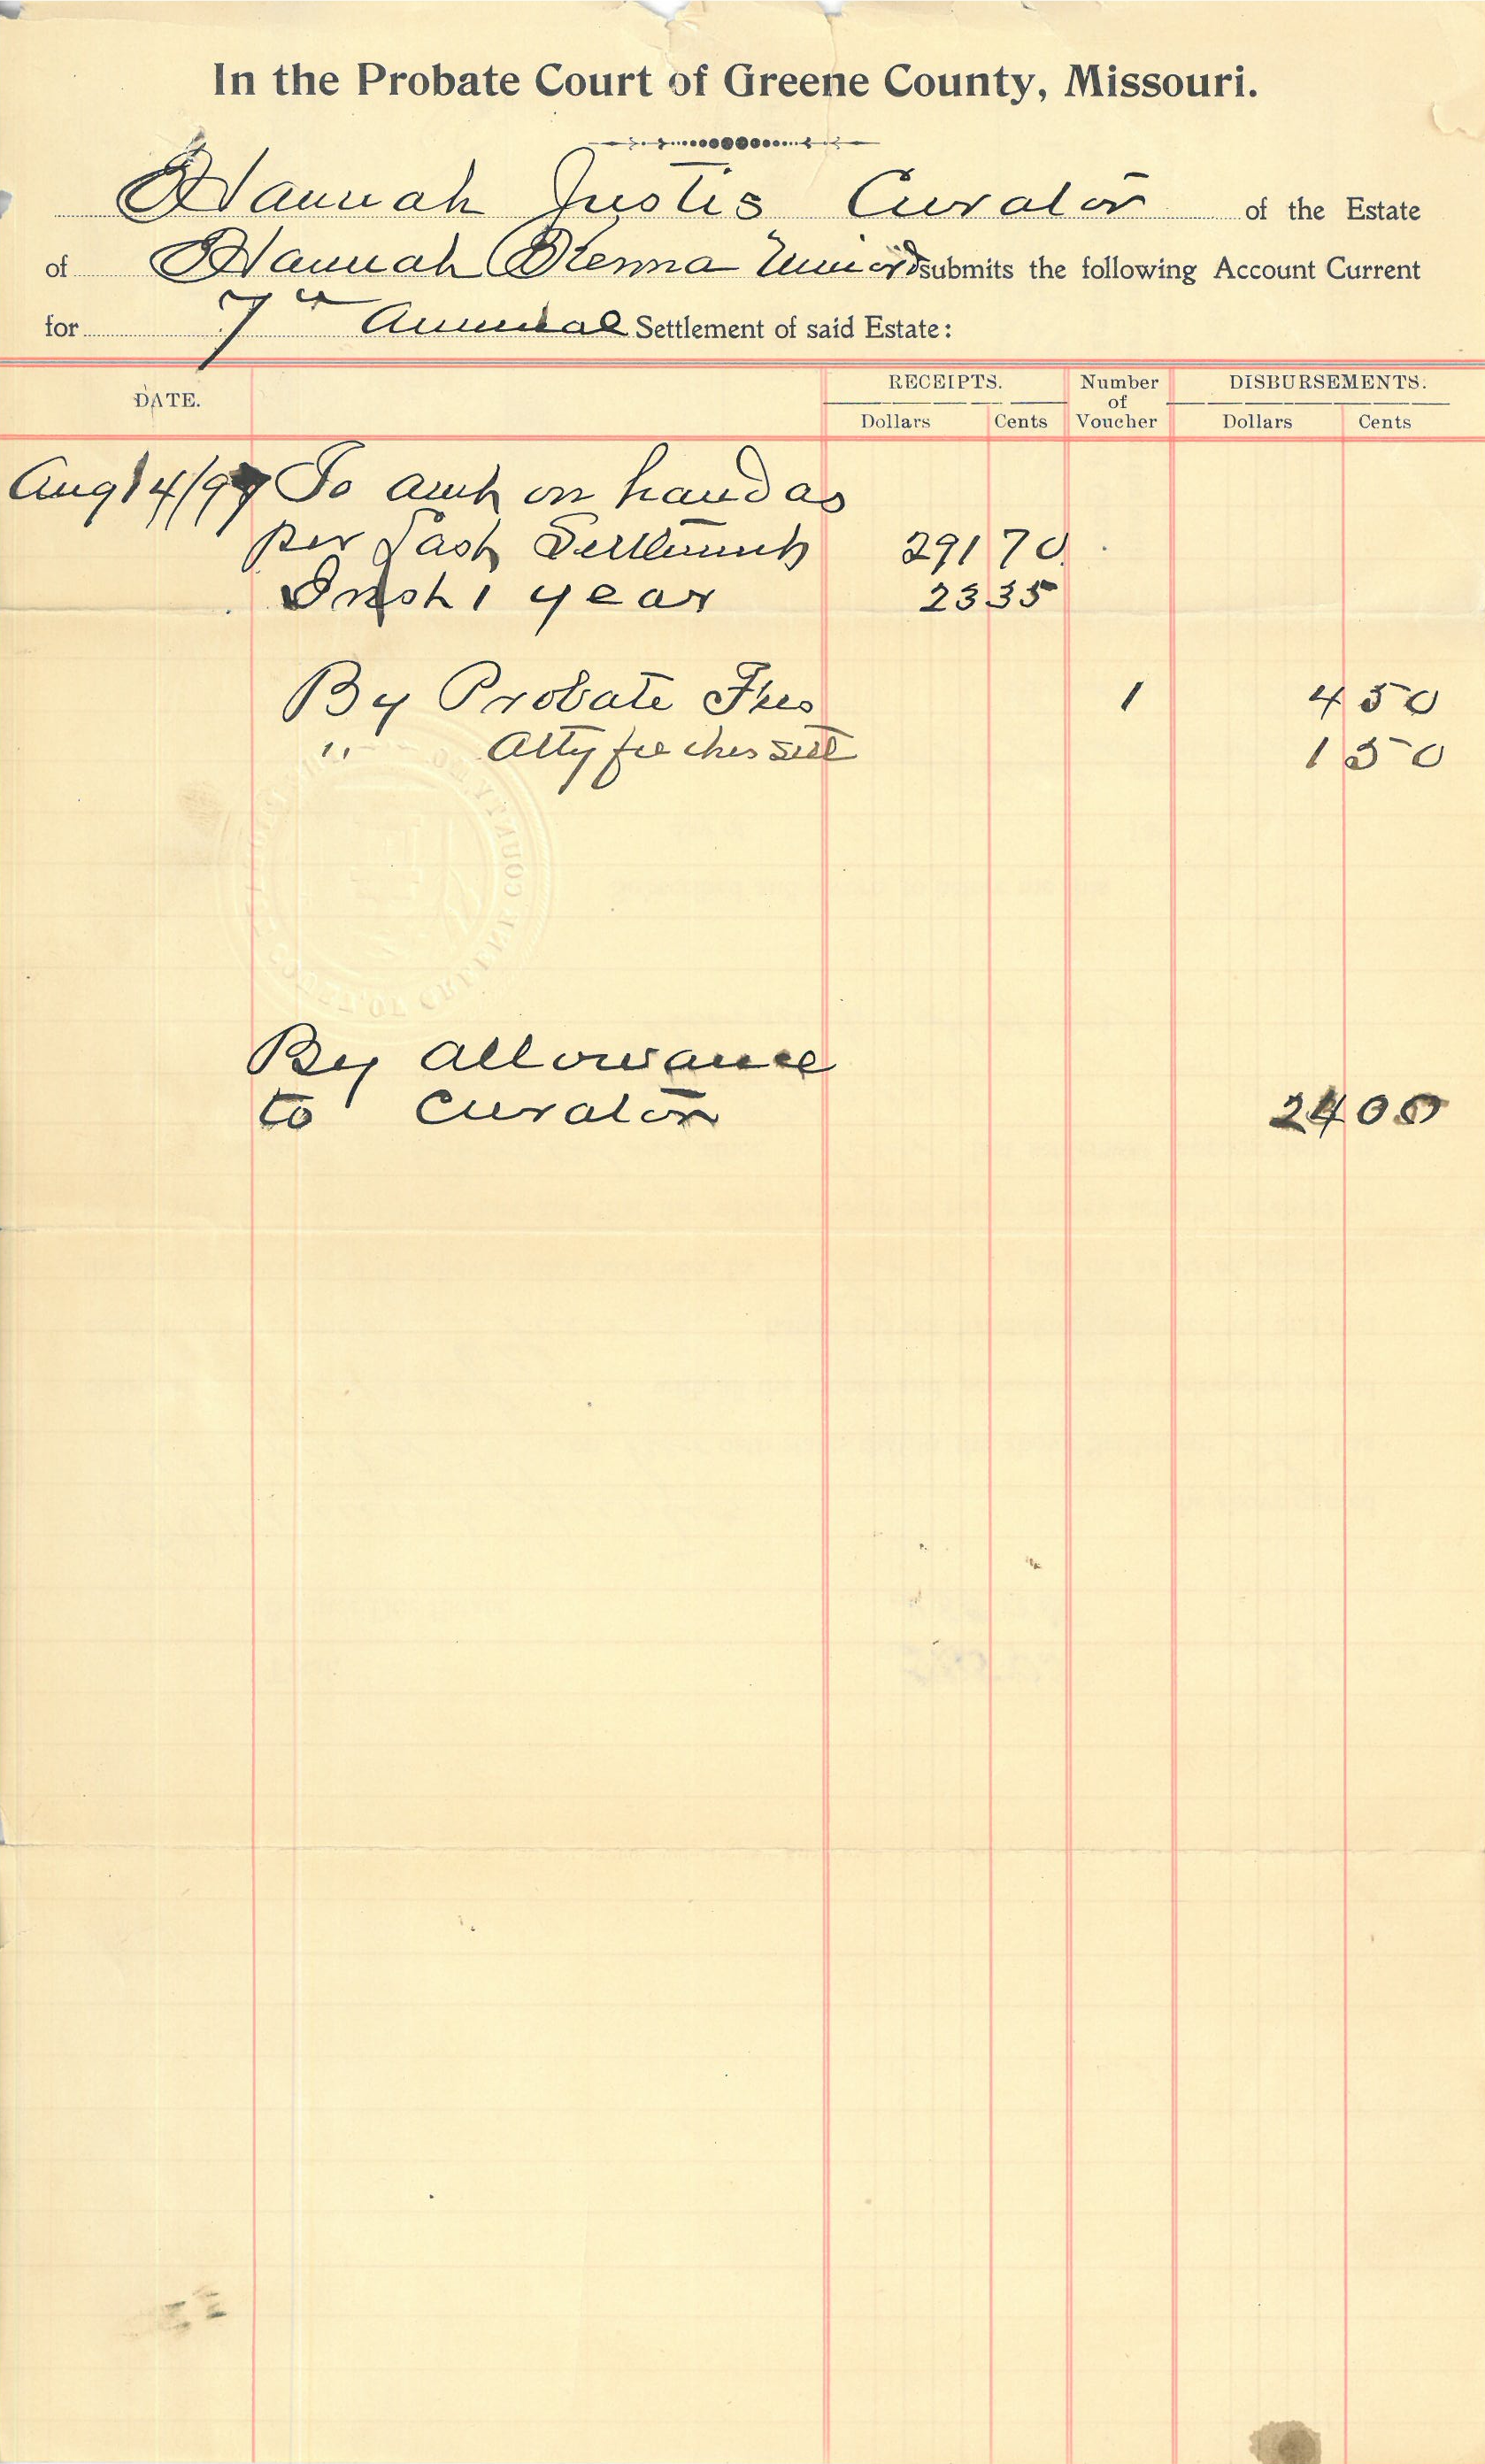 In the Probate Court of Greene County, Missouri.
Hannah Justis Curator of the Estate
of Hannah Kenna Minor submits the following Account Current
for 7th Annual Settlement of said Estate:
DATE. RECEIPTS. Number of Voucher DISBURSEMENTS.
Dollars Cents Dollars Cents
Aug 14/99 To amt on hand as
per last Settlement 291 70
Inst 1 year 23 35
By Probate Fees 1 4 50
" Atty fee this Sett 1 50
By allowance
to Curator 24 00
COURT OF GREENE COUNTY, MO